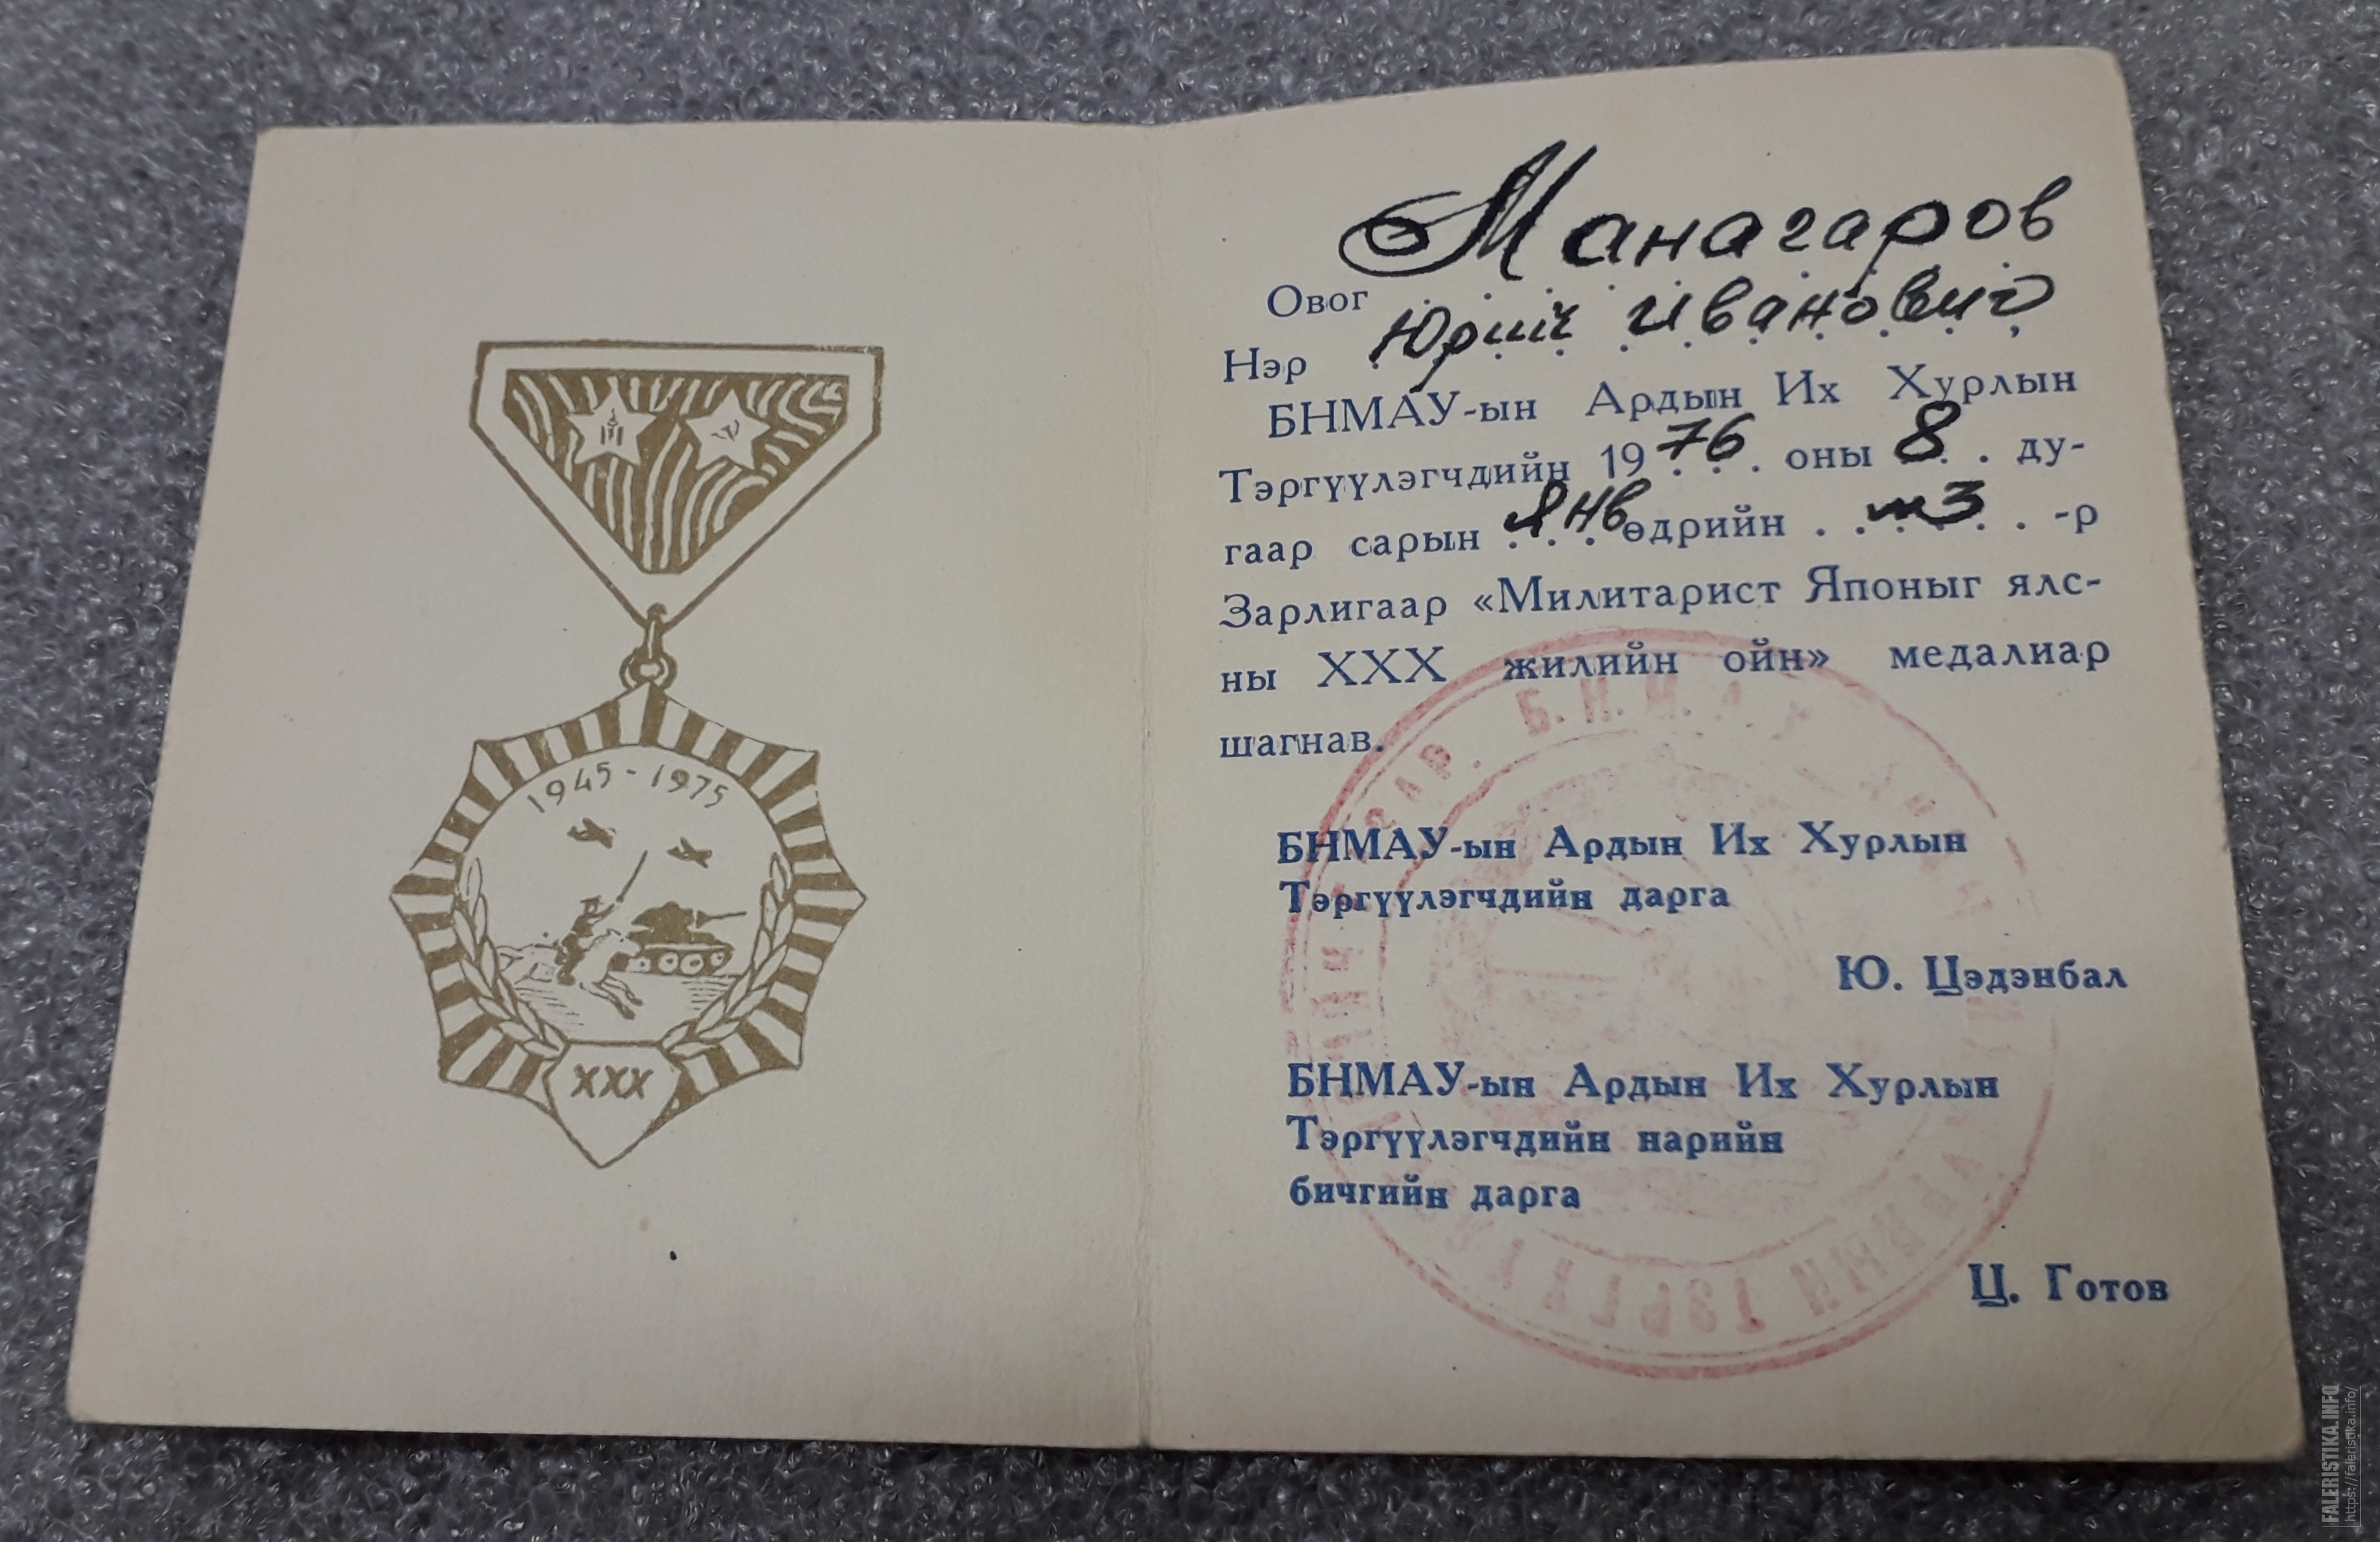 1945-1975
XXX
Манагаров
Овог
Нэр Юрий Иванович
БНМАУ-ын Ардын Их Хурлын
Тэргүүлэгчдийн 1976 оны 8 ду-
гаар сарын янв өдрийн №3 -р
Зарлигаар «Милитарист Японыг ялс-
ны XXX жилийн ойн» медалиар
шагнав.
БНМАУ-ын Ардын Их Хурлын
Тэргүүлэгчдийн дарга
Ю. Цэдэнбал
БНМАУ-ын Ардын Их Хурлын
Тэргүүлэгчдийн нарийн
бичгийн дарга
Ц. Готов
Б.Н.М.А.У
FALERISTIKA.INFO
https://faleristika.info/